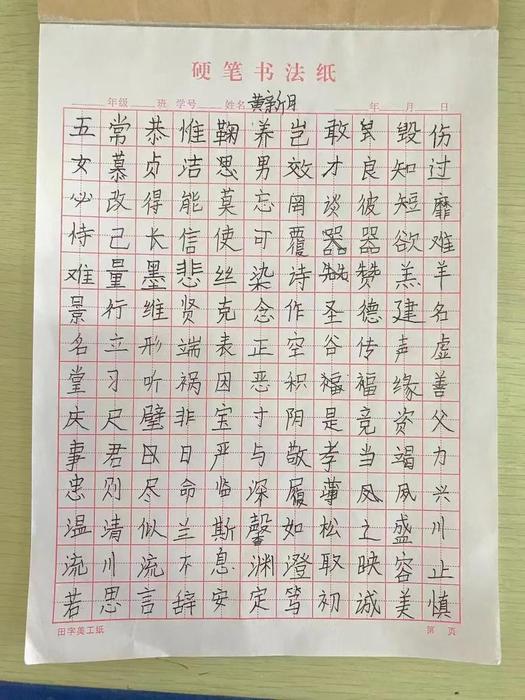 硬笔书法纸
年级 班 学号 姓名 黄新月 年 月 日
五常恭惟鞠养岂敢毁伤
女慕贞洁思男效才良知过
必改得能莫忘罔谈彼短靡
恃己长信使可覆器欲难
难量墨悲丝染诗赞羔羊
景行维贤克念作圣德建名
名立形端表正空谷传声虚
堂习听祸因恶积福福缘善
庆尺璧非宝寸阴是竞资父
事君曰日严与敬孝当竭力
忠则尽命临深履薄夙兴
温清似兰斯馨如松之盛川
流川流不息渊澄取映容止
若思言辞安定笃初诚美慎
田字美工纸 第 页